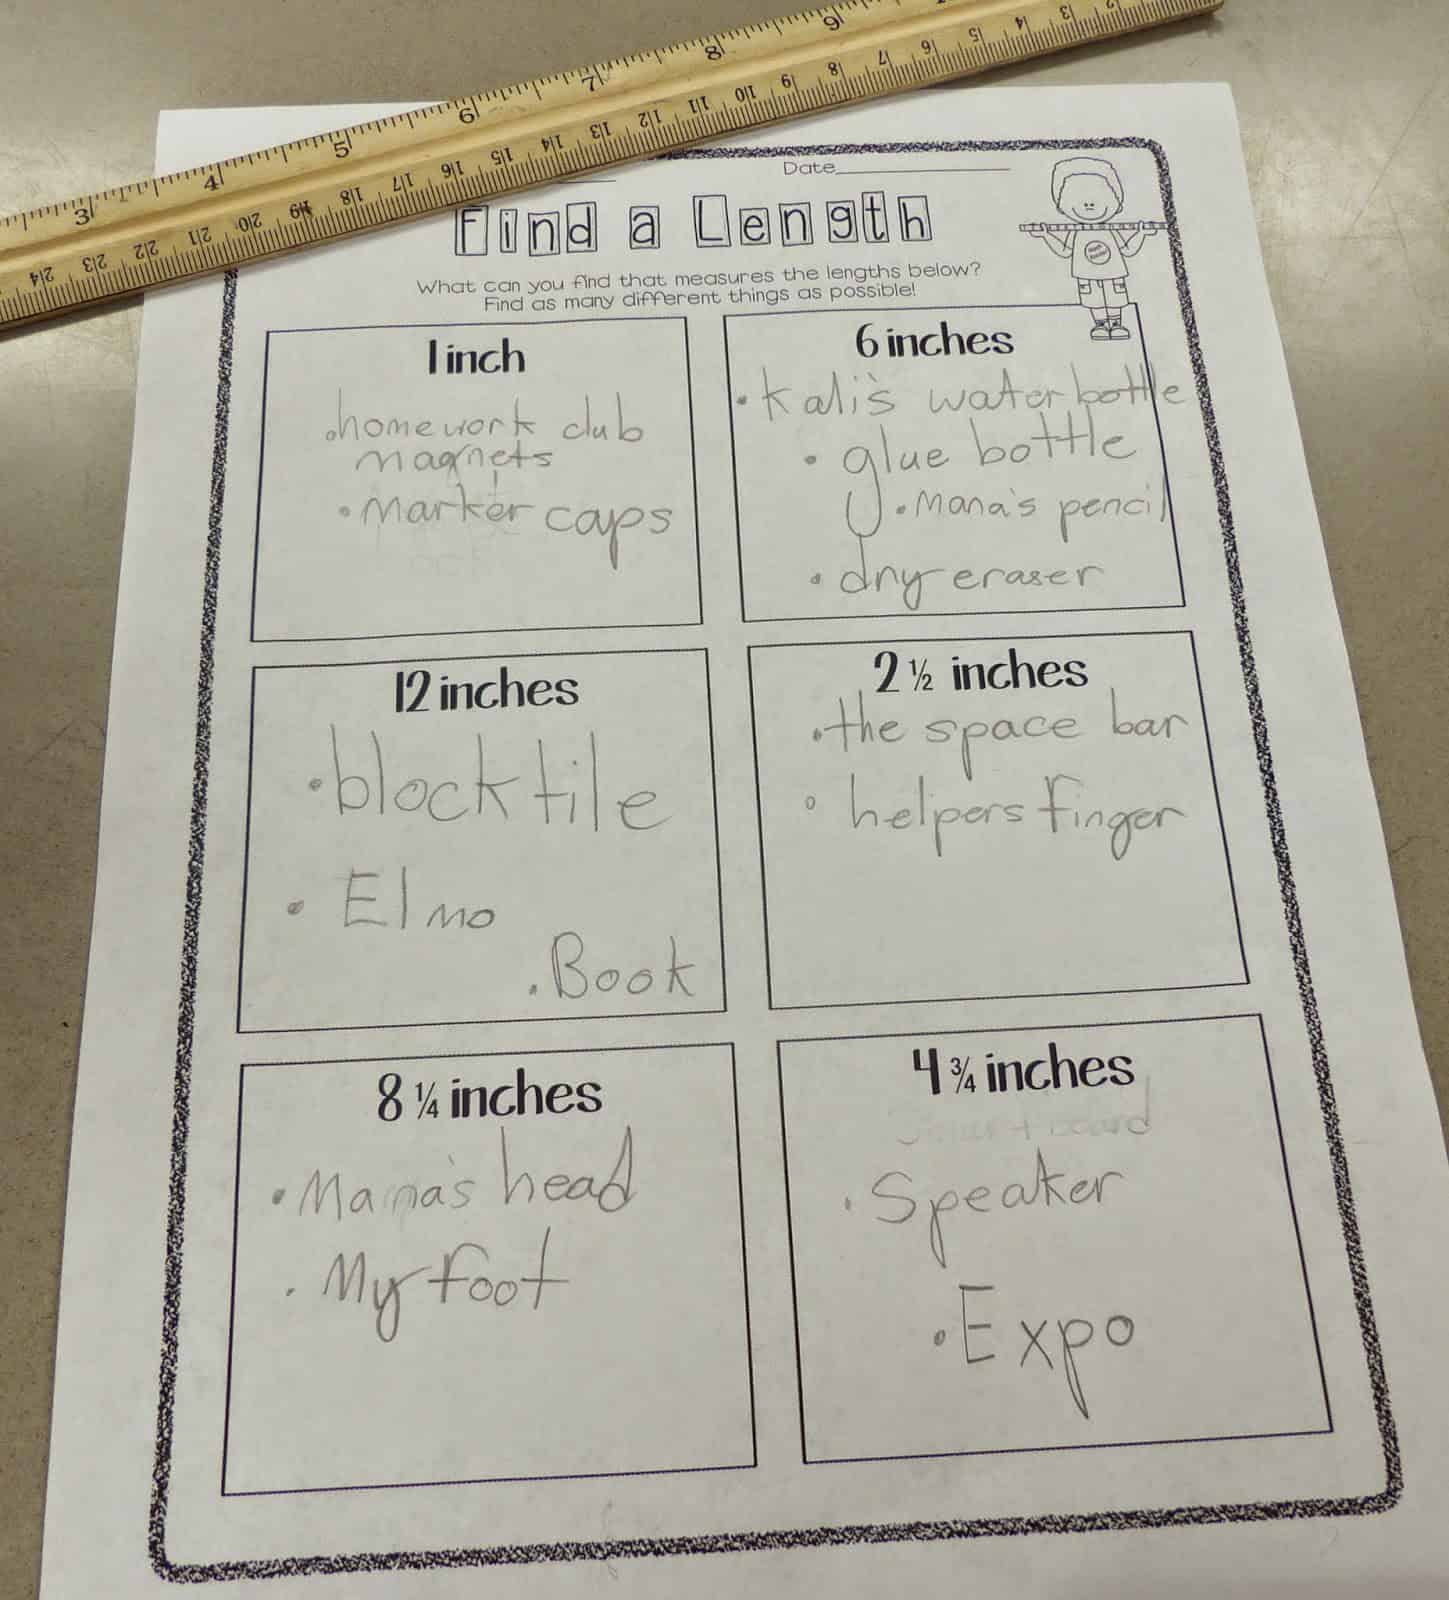 3 4 5 6 7 8 9
24 23 22 21 20 19 18 17 16 15 14 13 12 11 10 9 8 7 6 5 4 3 2
Date
Find a Length
What can you find that measures the lengths below?
Find as many different things as possible!
1 inch
• homework club
magnets
• marker caps
6 inches
• Kali's water bottle
• glue bottle
• Mana's pencil
• dry eraser
12 inches
• block tile
• Elmo
• Book
2 ½ inches
• the space bar
• helpers finger
8 ¼ inches
• Mana's head
• My foot
4 ¾ inches
• Speaker
• Expo